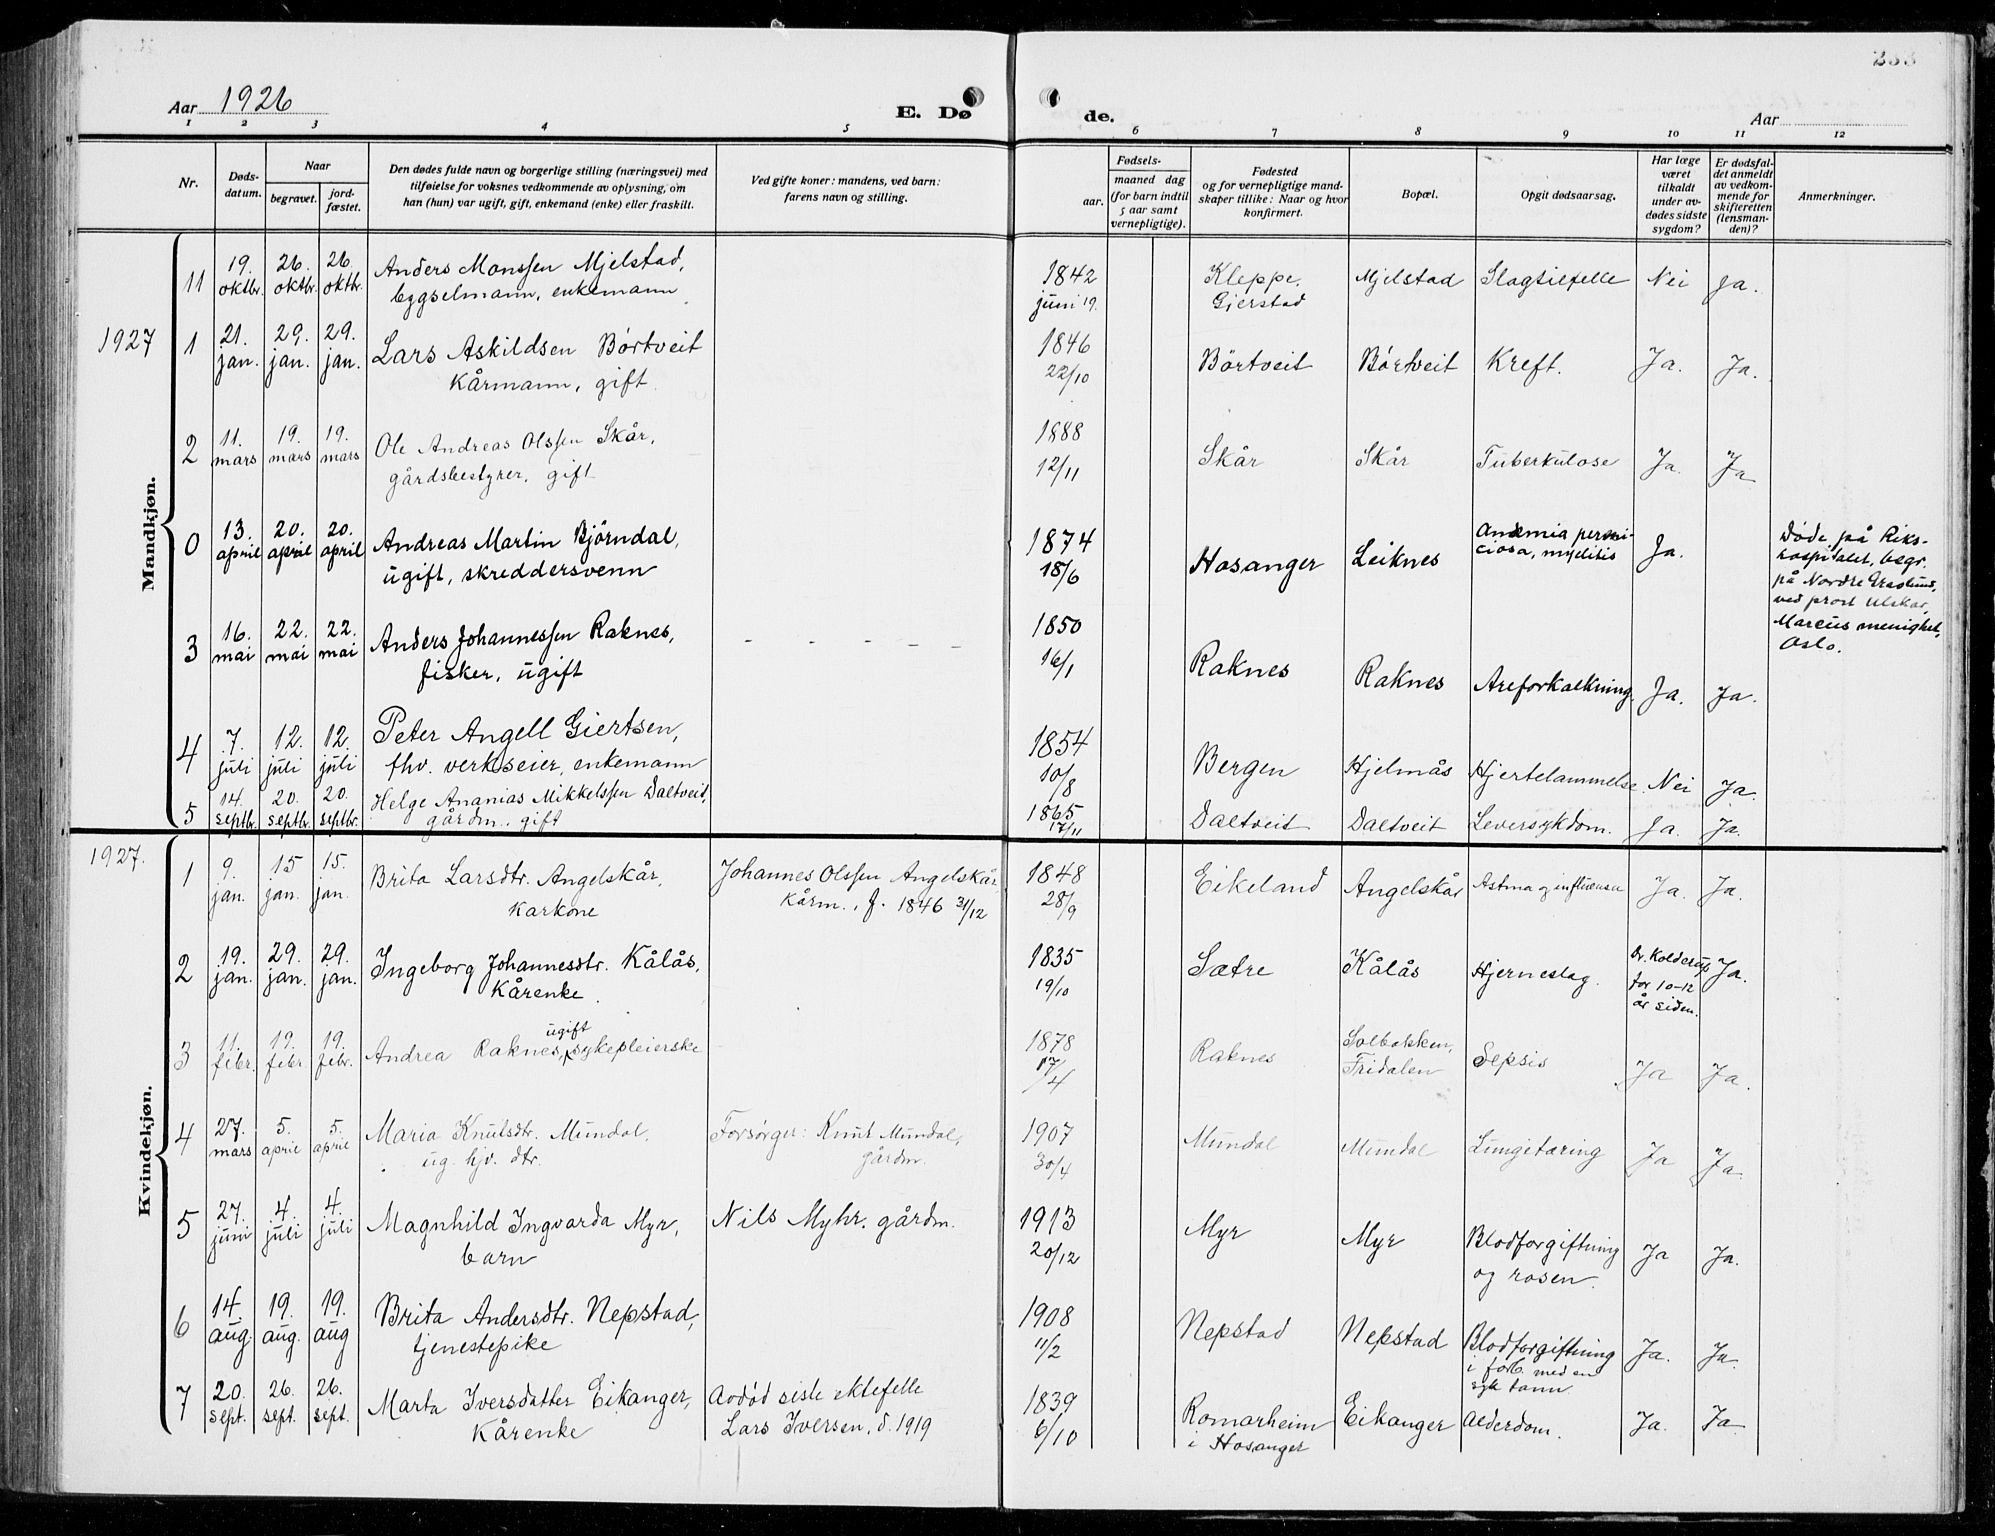 233
Aar 1926
E. Dø
de.
Aar
1 2 3 4 5 6 7 8 9 10 11 12
Nr.
Dødsdatum.
Naar
begravet.
jordfæstet.
Den dødes fulde navn og borgerlige stilling (næringsvei) med
tilføielse for voksnes vedkommende av oplysning, om
han (hun) var ugift, gift, enkemand (enke) eller fraskilt.
Ved gifte koner: mandens, ved barn:
farens navn og stilling.
Fødsels-
aar.
maaned dag
(for barn indtil
5 aar samt
vernepligtige).
Fødested
og for vernepligtige mand-
skaper tillike: Naar og hvor
konfirmert.
Bopæl.
Opgit dødsaarsag.
Har læge
været
tilkaldt
under av-
dødes sidste
sygdom?
Er dødsfal-
det anmeldt
av vedkom-
mende for
skifteretten
(lensman-
den)?
Anmerkninger.
Mandkjøn.
11 19. oktbr. 26. oktbr. 26. oktbr. Anders Monssen Mjelstad, 1842 Kleppe, Mjelstad Slagtilfelle Nei Ja.
bygselmann, enkemann juni 19. Gjerstad
1927 1 21. jan. 29. jan. 29. jan. Lars Askildsen Börtveit 1846 Börtveit Börtveit Kreft. Ja. Ja.
Kårmann, gift 22/10
2 11. mars 19. mars 19. mars Ole Andreas Olssen Skår, 1888 Skår Skår Tuberkulose Ja. Ja
gårdsbestyrer, gift 12/11
0 13. april 20. april 20. april Andreas Martin Björndal, 1874 Hosanger Leiknes Anæmia perni-
ciosa, myelitis Ja.
ugift, skreddersvenn 18/6
Døde på Riks-
hospitalet, begr.
på Nordre Graslund,
ved prost Ulskar,
Marcus menighet,
Oslo.
3 16. mai 22. mai 22. mai Anders Johannessen Raknes, - - - - - 1850 Raknes Raknes Areforkalkning. Ja. Ja.
fisker, ugift 16/1
4 7. juli 12. juli 12. juli Peter Angell Giertsen, 1854 Bergen Hjelmås Hjertelammelse. Nei Ja.
fhv. verkseier, enkemann 10/8
5 14. septbr. 20. septbr. 20. septbr. Helge Ananias Mikkelssen Daltveit, 1865 Daltveit Daltveit Leversykdom. Ja. Ja.
gårdm. gift 17/11
Kvindekjøn.
1927. 1 9. jan. 15 jan. 15. jan. Brita Larsdtr. Angelskår, Johannes Olssen Angelskår 1848 Eikeland Angelskår Astma og influensa Ja. Ja.
Karkone kårm., f. 1846 31/12 28/9
2 19. jan. 29. jan. 29. jan. Ingeborg Johannesdtr. Kålås, 1835 Sætre Kålås Hjerneslag. Dr. Kolderup
for 10-12
år siden. Ja.
Kårenke. 19/10
3 11. febr. 19. febr. 19. febr. Andrea Raknes, ugift sykepleierske 1878 Raknes Solbakken, Sepsis Ja Ja.
17/4 Fridalen
4 27. mars 5. april 5. april Maria Knutsdtr. Mundal, Forsørger: Knut Mundal, 1907 Mundal Mundal Lungetæring Ja Ja.
ug. hjv. dtr. gårdm. 30/4
5 27. juni 4. juli 4. juli Magnhild Ingvarda Myr, Nils Myhr. gårdm. 1913 Myr Myr Blodforgiftning Ja Ja.
barn 20/12 og rosen.
6 14. aug. 19. aug. 19. aug Brita Andersdtr. Nepstad, 1908 Nepstad Nepstad Blodforgiftning Ja. Ja.
tjenestepike 11/2 i forb. med en
syk tann.
7 20. sept. 26. sept. 26. sept. Marta Iversdatter Eikanger, Avdød siste ektefelle 1839 Romarheim Eikanger Alderdom. Ja. Ja.
Kårenke Lars Iversen, d. 1919 6/10 i Hosanger